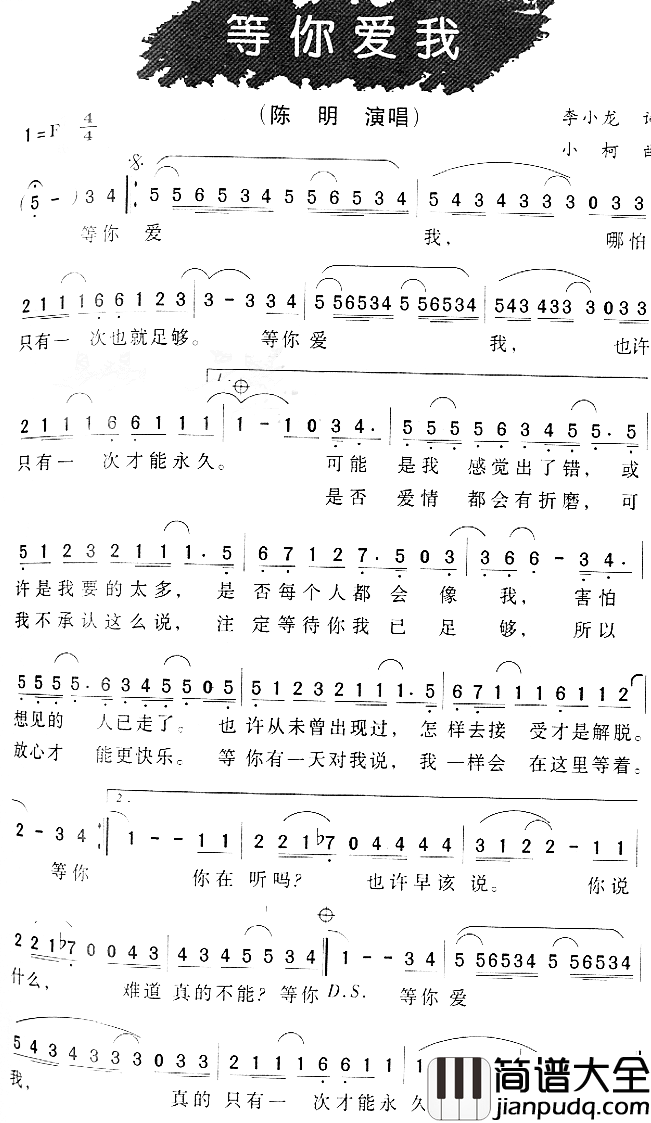 等你爱我
(陈 明 演唱)
李小龙
1=F 4/4
小 柯
(5 - )3 4 5 5 5 6 5 3 4 5 5 5 6 5 3 4 5 4 3 4 3 3 3 0 3 3
等你 爱 我, 哪怕
2 1 1 1 6 6 1 2 3 3 - 3 3 4 5 5 6 5 3 4 5 5 6 5 3 4 5 4 3 4 3 3 3 0 3 3
只有一 次也就足够。 等你 爱 我, 也许
1.
2 1 1 1 6 6 1 1 1 1 - 1 0 3 4 . 5 5 5 5 6 3 4 5 5 . 5
只有一 次才能永久。 可能 是我 感觉出了错, 或
是否 爱情 都会有折磨, 可
5 1 2 3 2 1 1 1 . 5 6 7 1 2 7 . 5 0 3 3 6 6 - 3 4 .
许是我要的太多, 是 否每个人都 会 像 我, 害怕
我不承认这么说, 注 定等待你我 已 足 够, 所以
5 5 5 5 . 6 3 4 5 5 0 5 5 1 2 3 2 1 1 1 . 5 6 7 1 1 1 6 1 1 2
想见的 人已走了。 也 许从未曾出现过, 怎 样去接 受才是解脱。
放心才 能更快乐。 等 你有一天对我说, 我 一样会 在这里等着。
2.
2 - 3 4 1 - - 1 1 2 2 1 b7 0 4 4 4 4 3 1 2 2 - 1 1
等你 你在 听吗? 也许早该 说。 你说
2 2 1 b7 0 0 4 3 4 3 4 5 5 3 4 1 - - 3 4 5 5 6 5 3 4 5 5 6 5 3 4
什么, 难道 真的不能? 等你 D.S. 等你 爱
5 4 3 4 3 3 3 0 3 3 2 1 1 1 6 6 1 1 1
我, 真的 只有一 次才能永 久
简谱大全
jianpudq.com